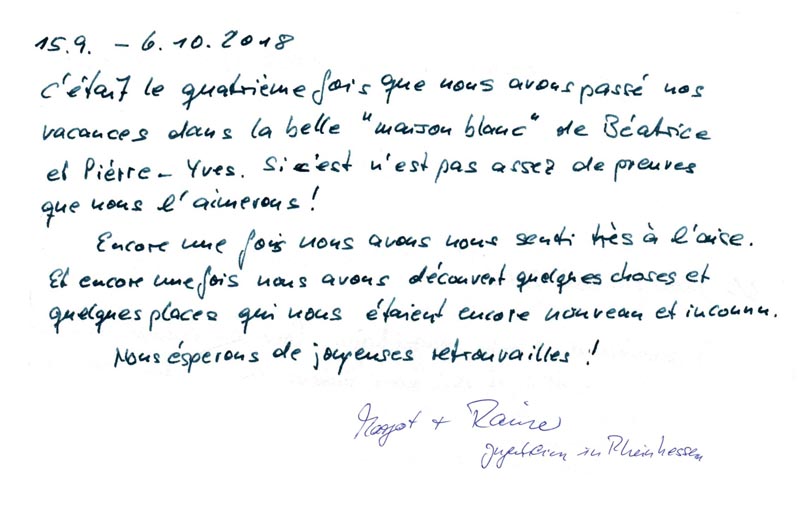 15.9. – 6.10.2018
c'était le quatrième fois que nous avons passé nos
vacances dans la belle "maison blanc" de Béatrice
et Piérre-Yves. Si c'est n'est pas assez de preuves
que nous l'aimerons!
Encore une fois nous avons nous senti très à l'aise.
Et encore une fois nous avons découvert quelques choses et
quelques places qui nous étaient encore nouveau et inconnu.
Nous ésperons de joyeuses retrouvailles!
Margot + Rainer
in Rheinhessen